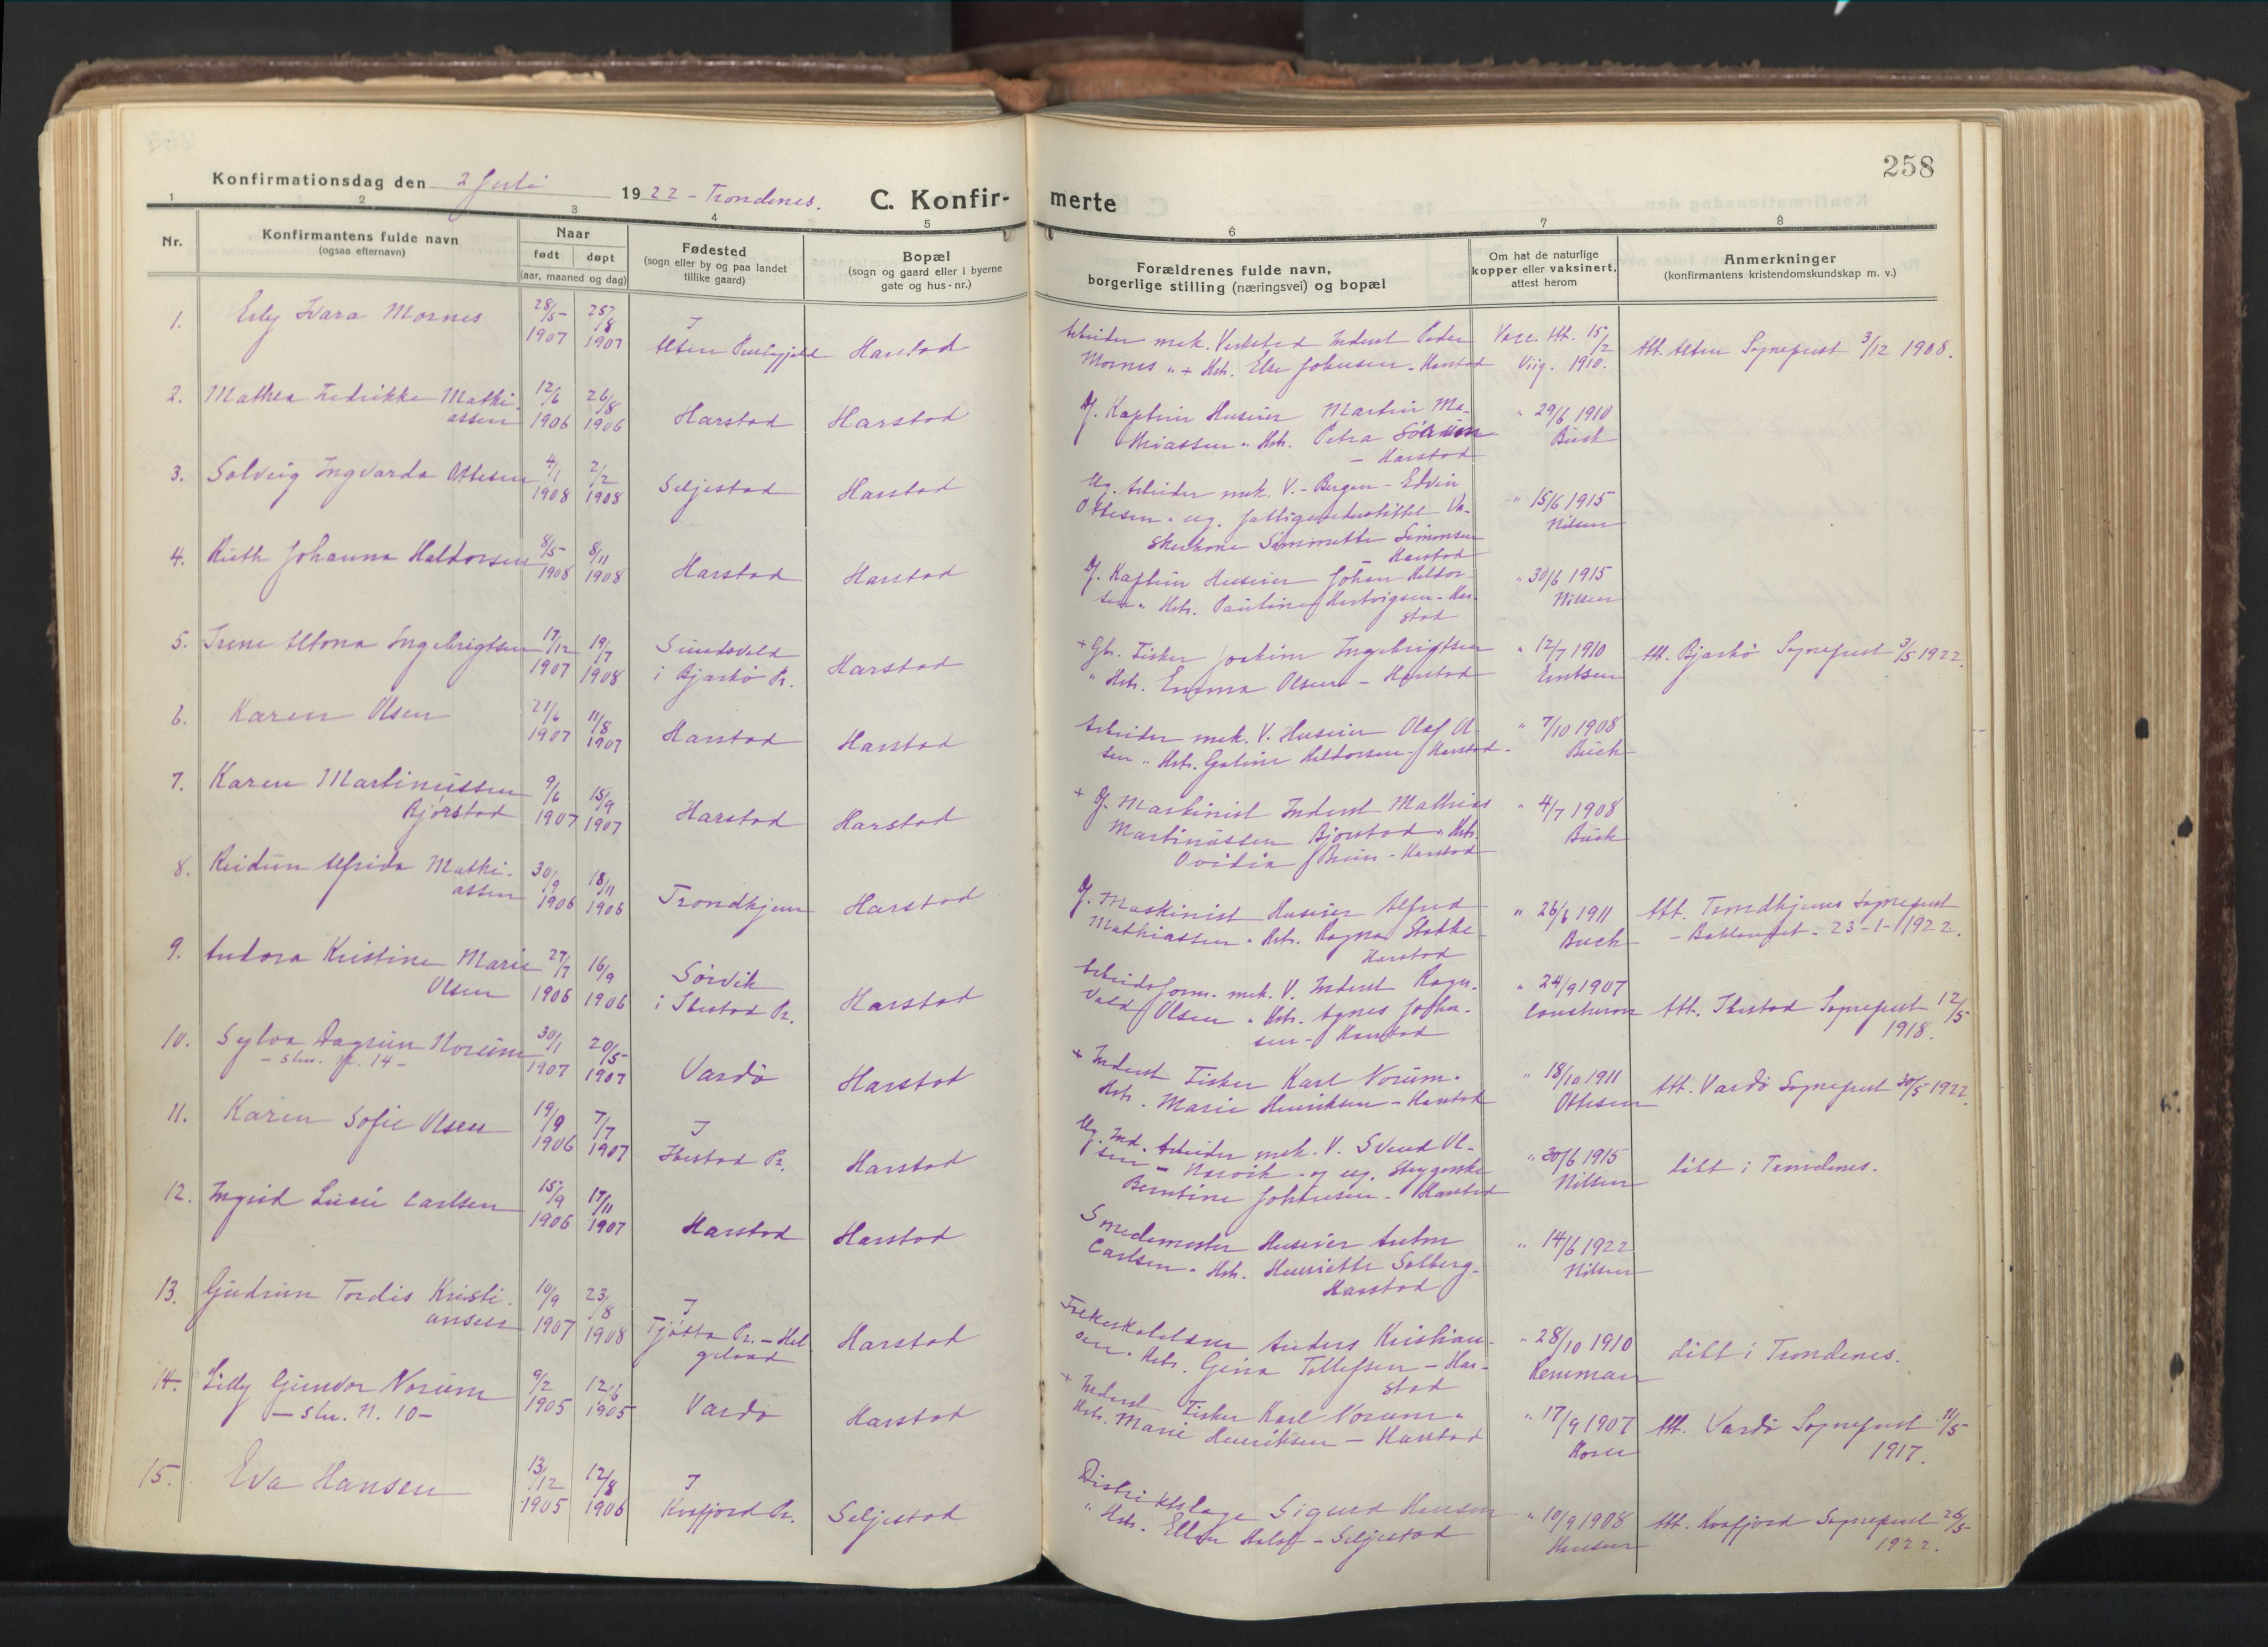 258
Konfirmationsdag den 2 Juli 1922 - Trondenes. C. Konfir- merte
1 2 3 4 5 6 7 8
Nr.
Konfirmantens fulde navn
(ogsaa efternavn)
Naar
født døpt
(aar, maaned og dag)
Fødested
(sogn eller by og paa landet
tillike gaard)
Bopæl
(sogn og gaard eller i byerne
gate og hus-nr.)
Forældrenes fulde navn,
borgerlige stilling (næringsvei) og bopæl
Om hat de naturlige
kopper eller vaksinert,
attest herom
Anmerkninger
(konfirmantens kristendomskundskap m. v.)
1. Mornes
28/5 1907
25/8 1907
I
Alten
Harstad
Arbeider mek. Verksted Inderst Peder
Mornes " + Hstr. Else Johnsen - Harstad
Vacc. Att. 15/2
Viig. 1910.
Att. Alten Sogneprest 3/12 1908.
2. Mathea Fredrikke Mathi-
assen
12/6 1906
26/8 1906
Harstad
Harstad
Kaptein Huseier Martin Ma-
thiassen " Hstr. Petra
- Harstad
" 29/6 1910
Buck
3. Solveig Ingvarda Ottesen
4/1 1908
2/2 1908
Seljestad
Harstad
Ug. Arbeider mek. V. - Bergen - Edvin
Ottesen " ug. Va-
skerkone Simonsen
- Harstad
" 15/6 1915
Nilsen
4. Ruth Johanna Haldorsen
8/5 1908
8/11 1908
Harstad
Harstad
Kaptein Huseier Johan Haldor-
sen " Hstr. Pauline Hartvigsen - Har-
stad
" 30/6 1915
Nilsen
5. Irene Altona Ingebrigtsen
17/12 1907
19/7 1908
Sundsvold
i Bjarkö Pr.
Harstad
+ Gbr. Fisker Joakim Ingebrigtsen
" Hstr. Emma Olsen - Harstad
" 12/7 1910
Att. Bjarkö Sogneprest 3/5 1922.
6. Karen Olsen
21/6 1907
11/8 1907
Harstad
Harstad
Arbeider mek. V. Huseier Olaf Ol-
sen " Hstr. Galine Haldorsen - Harstad -
" 7/10 1908
Buck
7. Karen Martinussen
Bjørstad
9/6 1907
15/9 1907
Harstad
Harstad
+ Maskinist Inderst Mathias
Martinussen Bjørstad " Hstr.
Ovidia Bruun - Harstad
" 4/7 1908
Buck
8. Reidun Alfrida Mathi-
assen
30/9 1906
18/11 1906
Trondhjem
Harstad
Maskinist Huseier Alfred
Mathiassen " Hstr. Ragna
Harstad
" 26/6 1911
Buck
Att. Trondhjems Sogneprest
- Baklandet - 23-1-1922.
9. Andora Kristine Marie
Olsen
27/7 1906
16/9 1906
Sörvik
i Ibestad Pr.
Harstad
Arbeidsform. mek. V. Inderst Ragn-
vald Olsen " Hstr. Agnes Johan-
sen - Harstad
" 24/9 1907
Att. Ibestad Sogneprest 12/5
1918.
10. Sylva Dagrun Norum
- sbn. N. 14 -
30/1 1907
20/5 1907
Vardö
Harstad
+ Inderst Fisker Karl Norum "
Hstr. Marie Henriksen - Harstad
" 18/10 1911
Ottesen
Att. Vardö Sogneprest 30/5 1922.
11. Karen Sofie Olsen
19/9 1906
7/7 1907
I
Ibestad Pr.
Harstad
Ug. Ind. Arbeider mek. V. Svend Ol-
sen - Narvik - og ug.
Berntine Johansen - Harstad
" 30/6 1915
Nilsen
døbt i Trondenes.
12. Ingrid Lucie Carlsen
15/9 1906
17/11 1907
Harstad
Harstad
Smedemester Huseier Anton
Carlsen " Hstr. Henriette Solberg -
Harstad
" 14/6 1922
Nilsen
13. Gudrun Tordis Kristi-
ansen
10/9 1907
23/8 1908
I
Tjötta Pr. - Hel-
geland
Harstad
Folkeskolelærer Anders Kristian-
sen " Hstr. Gina Tollefsen - Har-
stad
" 28/10 1910
døbt i Trondenes.
14. Lilly Gunvor Norum
- sbn. N. 10 -
9/2 1905
12/6 1905
Vardö
Harstad
+ Inderst Fisker Karl Norum "
Hstr. Marie Henriksen - Harstad
" 17/9 1907
Att. Vardö Sogneprest 11/5
1917.
15. Eva Hansen
13/12 1905
12/8 1906
I
Kvæfjord Pr.
Seljestad
Distriktslæge Sigurd Hansen
" Hstr. Ellen - Seljestad
" 10/9 1908
Hansen
Att. Kvæfjord Sogneprest 26/5
1922.